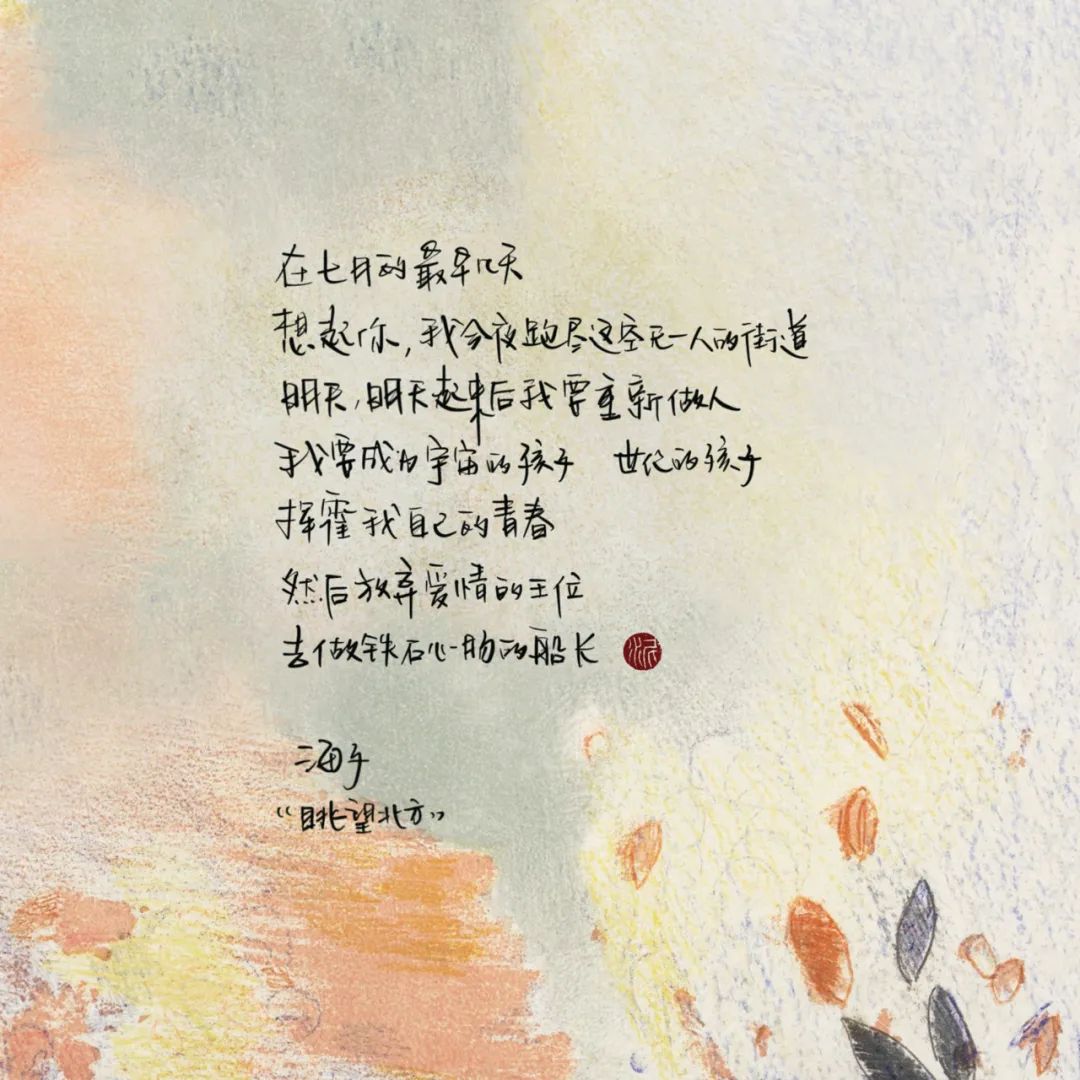 在七月的最早几天
想起你,我今夜跑尽这空无一人的街道
明天,明天起来后我要重新做人
我要成为宇宙的孩子 世纪的孩子
挥霍我自己的青春
然后放弃爱情的王位
去做铁石心肠的船长
海子
“眺望北方”